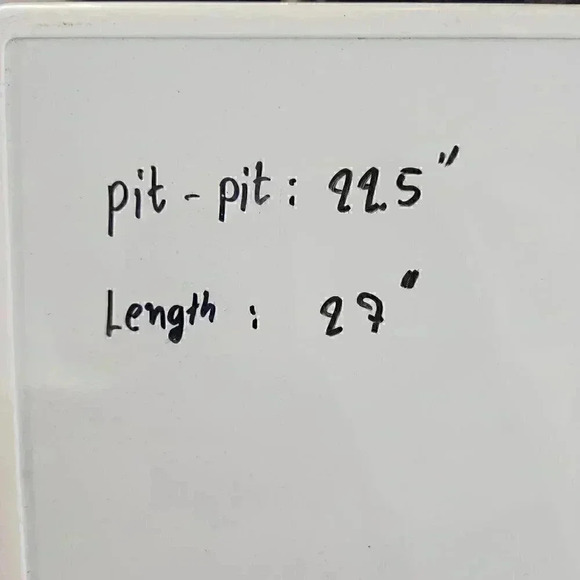 pit - pit : 22.5"
Length : 27"